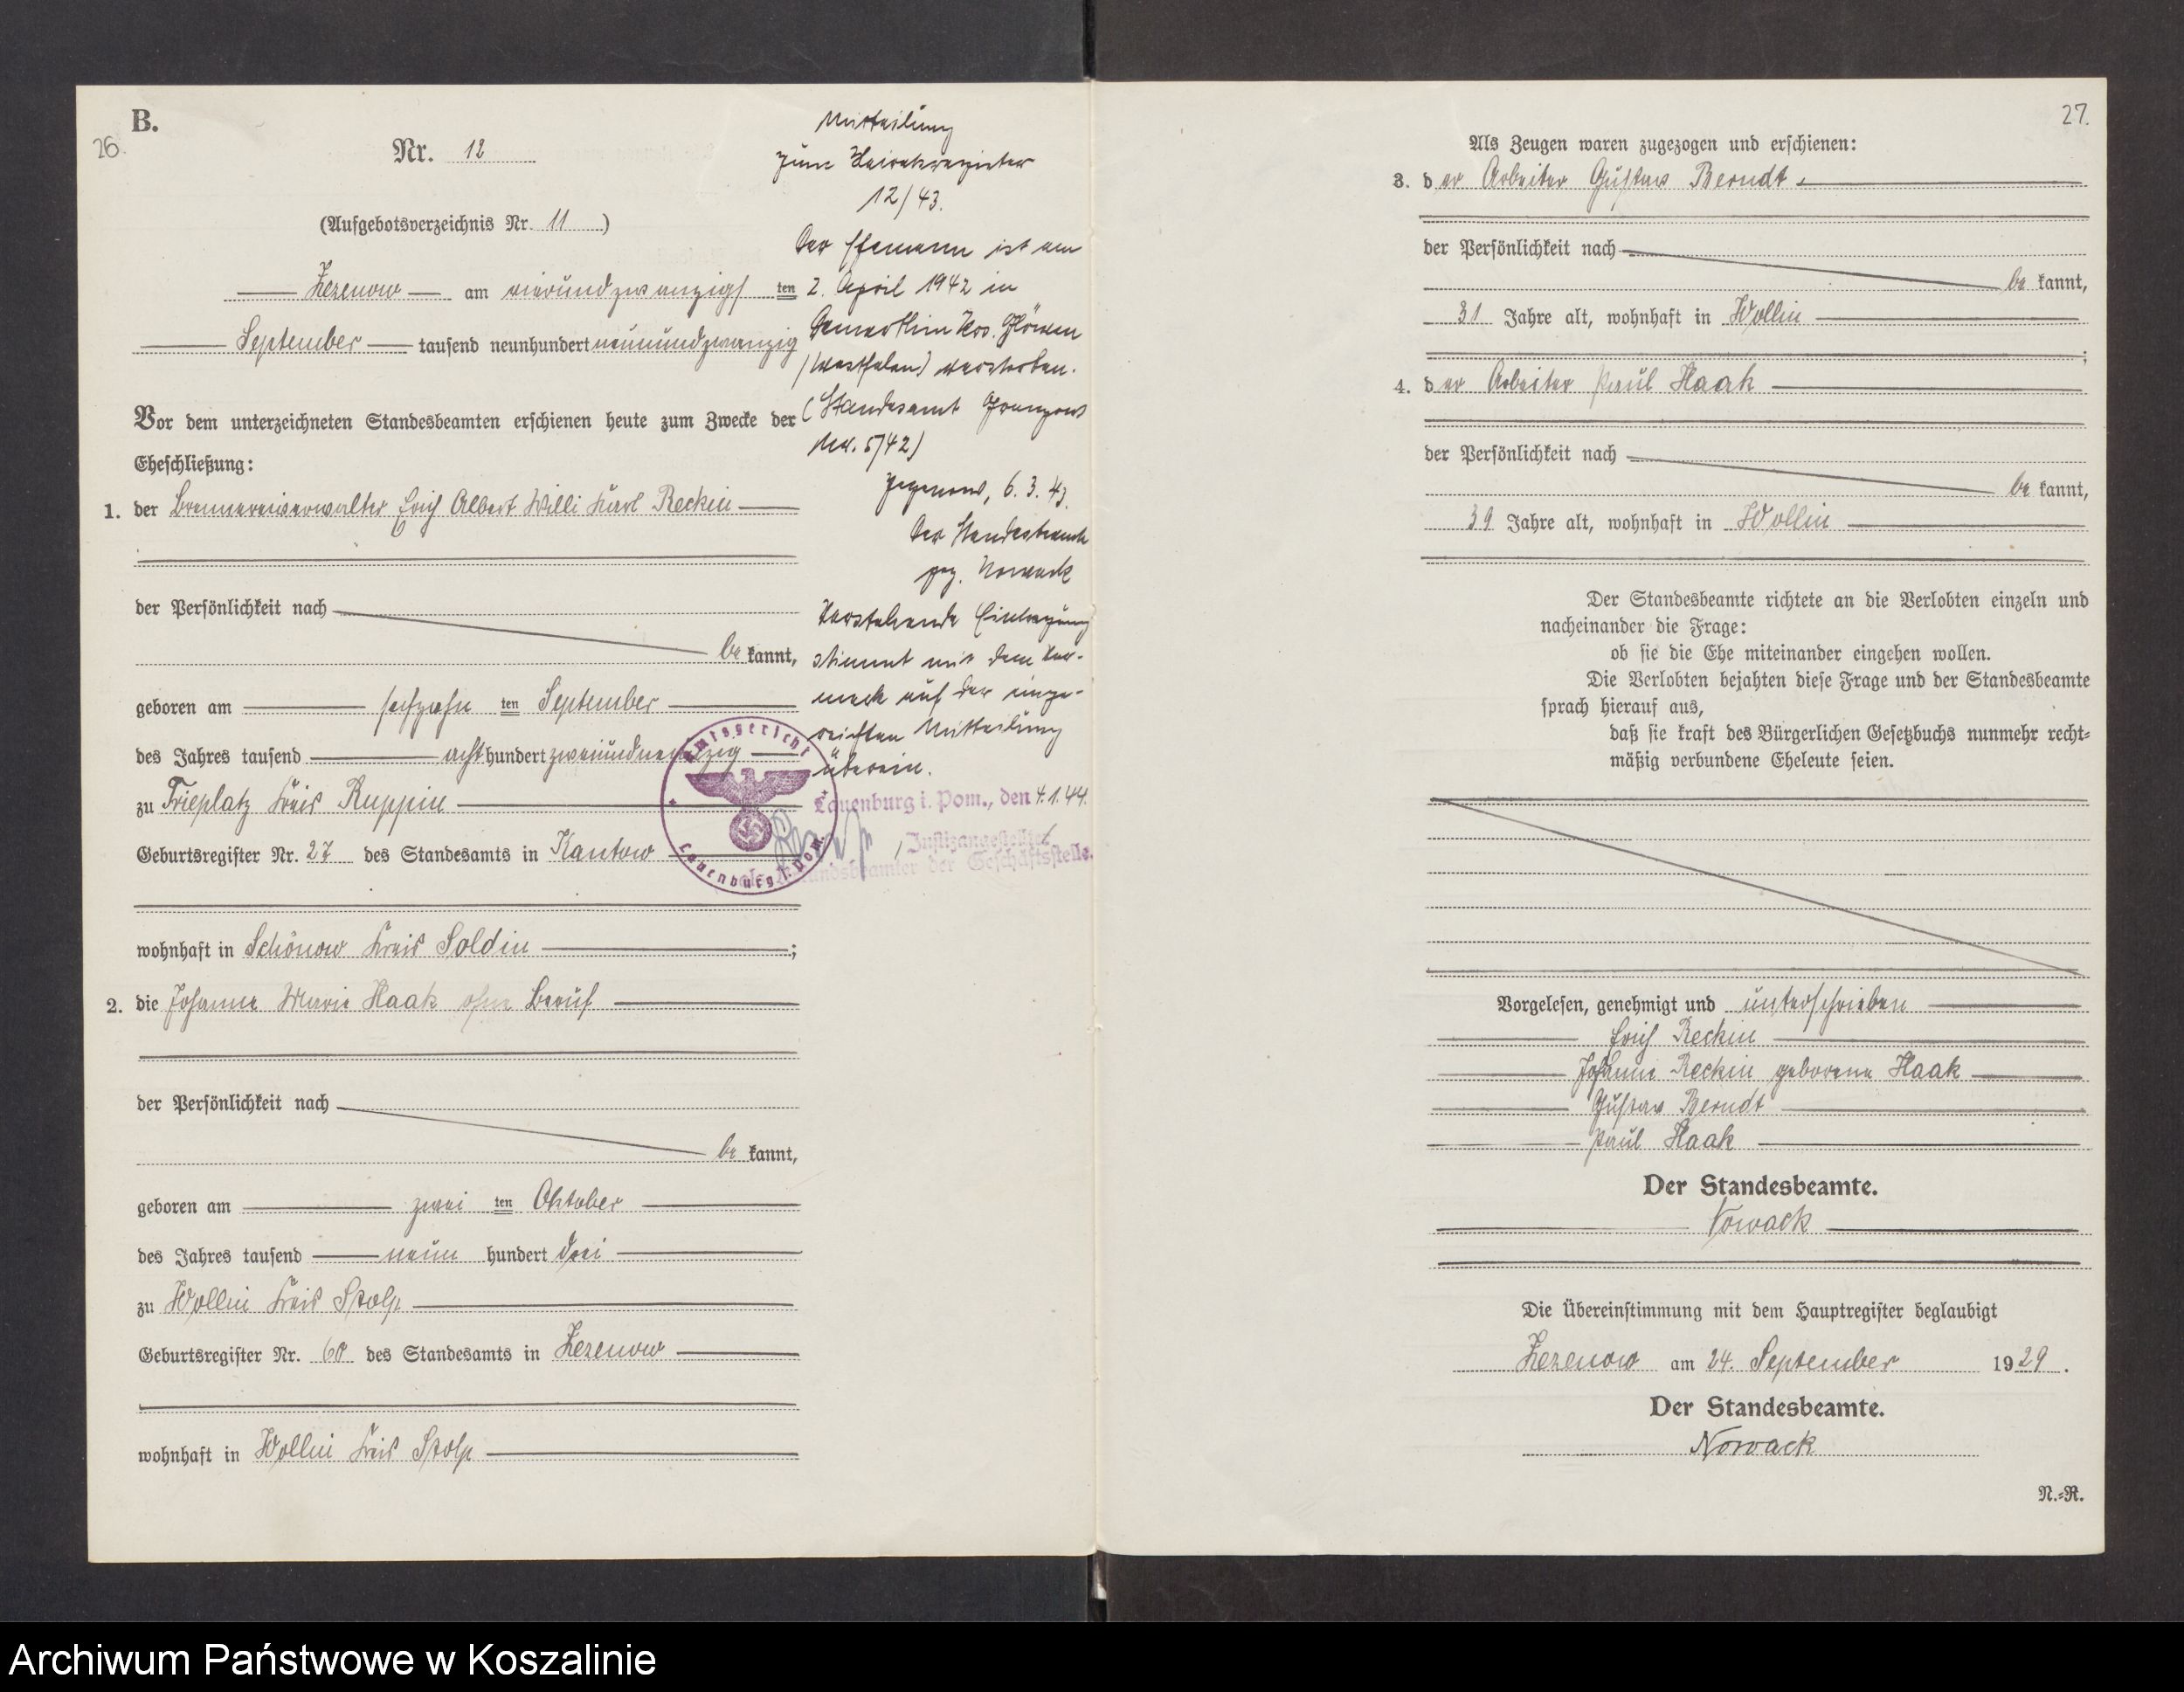 B.
26.
Nr. 12
(Aufgebotsverzeichnis Nr. 11)
Zezenow am vierundzwanzigsten
September tausend neunhundert neunundzwanzig
Vor dem unterzeichneten Standesbeamten erschienen heute zum Zwecke der
Eheschließung:
1. der Brennereiverwalter Erich Albert Willi Karl Reckin
der Persönlichkeit nach
be kannt,
geboren am sechzehn ten September
des Jahres tausend acht hundert zweiundneunzig
zu Trieplatz Kreis Ruppin
Geburtsregister Nr. 27 des Standesamts in Kantow
wohnhaft in Schönow Kreis Soldin ;
2. die Johanne Marie Haak ohne Beruf
der Persönlichkeit nach
be kannt,
geboren am zwei ten Oktober
des Jahres tausend neun hundert drei
zu Wollin Kreis Stolp
Geburtsregister Nr. 60 des Standesamts in Zezenow
wohnhaft in Wollin Kreis Stolp
Mitteilung
zum Heiratsregister
12/43.
Der Ehemann ist am
2. April 1942 in
(Westfalen) verstorben.
(Standesamt
Nr. 5/42)
Zezenow, 6. 3. 43.
Der Standesbeamte
gez. Nowack
Vorstehende Eintragung
stimmt mit dem Ver-
merk auf der einge-
reichten Mitteilung
überein.
Lauenburg i. Pom., den 4.1.44.
Justizangestellter
als Urkundsbeamter der Geschäftsstelle.
Amtsgericht
Lauenburg i. Pom.
27.
Als Zeugen waren zugezogen und erschienen:
3. der Arbeiter Gustav Berndt
der Persönlichkeit nach
be kannt,
31 Jahre alt, wohnhaft in Wollin
;
4. der Arbeiter Paul Haak
der Persönlichkeit nach
be kannt,
39 Jahre alt, wohnhaft in Wollin
Der Standesbeamte richtete an die Verlobten einzeln und
nacheinander die Frage:
ob sie die Ehe miteinander eingehen wollen.
Die Verlobten bejahten diese Frage und der Standesbeamte
sprach hierauf aus,
daß sie kraft des Bürgerlichen Gesetzbuchs nunmehr recht-
mäßig verbundene Eheleute seien.
Vorgelesen, genehmigt und unterschrieben
Erich Reckin
Johanne Reckin geborene Haak
Gustav Berndt
Paul Haak
Der Standesbeamte.
Nowack
Die Übereinstimmung mit dem Hauptregister beglaubigt
Zezenow am 24. September 1929.
Der Standesbeamte.
Nowack
N.-R.
Archiwum Państwowe w Koszalinie